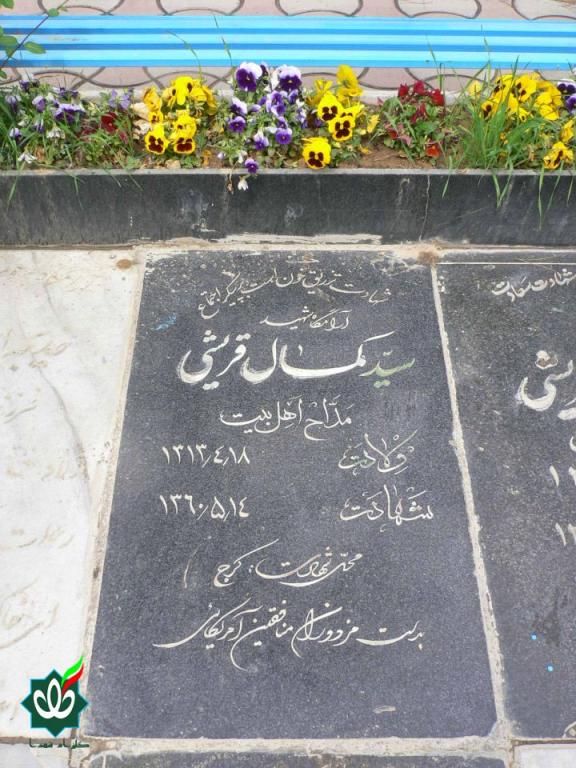 شهادت تزریق خون است به پیکر اجتماع
آرامگاه شهید
سیّد کمال قریشی
مدّاح اهل بیت
ولادت ۱۳۱۳/۴/۱۸
شهادت ۱۳۶۰/۵/۱۴
محل شهادت: کرج
بدست مزدوران منافقین آمریکائی
شهادت سعادت